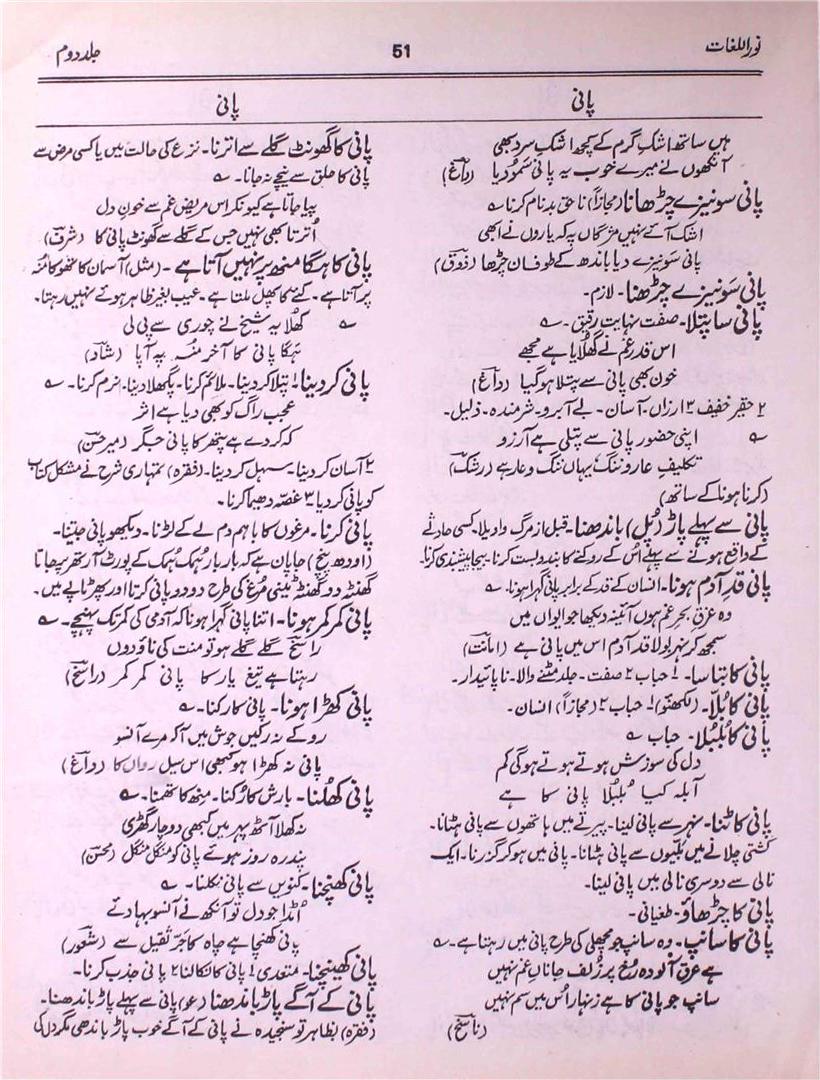 نور اللغات
51
جلد دوم
پانی
پانی
ہیں ساتھ اشکِ گرم کے کچھ اشکِ سرد بھی
آنکھوں نے میرے خوب یہ پانی سَمُو دیا (داغؔ)
پانی سو نیزے چڑھانا (مجازاً) ناحق بدنام کرنا ؎
اشک آئے نہیں مژگاں پہ کہ یاروں نے ابھی
پانی سو نیزے دیا باندھ کے طوفان چڑھا (ذوقؔ)
پانی سَو نیزے چڑھنا۔ لازم۔
پانی سا پتلا۔ صفت نہایت رقیق۔ ؎
اس قدر غم نے گھلایا ہے مجھے
خون بھی پانی سے پتلا ہو گیا (داغؔ)
۲ حقیر خفیف ۳ ارزاں۔ آسان۔ بے آبرو۔ شرمندہ۔ ذلیل۔
؎ اپنی حضور پانی سے پتلی ہے آرزو
تکلیفِ عار و ننگ یہاں ننگ و عار ہے (رشکؔ)
(کرنا ہونا کے ساتھ)
پانی سے پہلے پاڑ (پُل) باندھنا۔ قبل از مرگ واویلا۔ کسی حادثے
کے واقع ہونے سے پہلے اس کے روکنے کا بندوبست کرنا۔ بیجا پیشبندی کرنا۔
پانی قدِ آدم ہونا۔ انسان کے قد کے برابر پانی گہرا ہونا۔ ؎
وہ غرقِ بحرِ غم ہوں آئینہ دیکھا جو ایواں میں
سمجھ کر نہر بولا قد آدم اس میں پانی ہے (امانتؔ)
پانی کا بتاسا۔ ۱ حباب ۲ صفت۔ جلد مٹنے والا۔ ناپائیدار۔
پانی کا بُلّا۔ (لکھنؤ) ۱ حباب ۲ (مجازاً) انسان۔
پانی کا بُلبُلا۔ حباب ؎
دل کی سوزش ہوتے ہوتے ہوگی کم
آبلہ کیا بُلبُلا پانی کا ہے
پانی کاٹنا۔ نہر سے پانی لینا۔ پیرتے میں ہاتھوں سے پانی ہٹانا۔
کشتی چلانے میں بلّیوں سے پانی ہٹانا۔ پانی میں ہو کر گزرنا۔ ایک
نالی سے دوسری نالی میں پانی لینا۔
پانی کا چڑھاؤ۔ طغیانی۔
پانی کا سانپ۔ وہ سانپ جو مچھلی کی طرح پانی میں رہتا ہے۔ ؎
ہے عرق آلودہ رخ پر زلفِ جاناں غم نہیں
سانپ جو پانی کا ہے زنہار اُس میں سم نہیں
(ناسخؔ)
پانی کا گھونٹ گلے سے اترنا۔ نزع کی حالت میں یا کسی مرض سے
پانی کا حلق سے نیچے نہ جانا۔ ؎
پیا جاتا ہے کیونکر اس مریضِ غم سے خونِ دل
اُترتا بھی نہیں جس کے گلے سے گھونٹ پانی کا (شرفؔ)
پانی کا ہگا منھ پر نہیں آتا ہے۔ (مثل) آسمان کا تھوکا منہ
پر آتا ہے۔ کئے کا پھل ملتا ہے۔ عیب بغیر ظاہر ہوئے نہیں رہتا۔
؎ کھُلا یہ شیخ نے چوری سے پی لی
ہگا پانی کا آخر منہ پہ آیا (شادؔ)
پانی کر دینا ۱ پتلا کر دینا۔ ملائم کرنا۔ پگھلا دینا۔ نرم کرنا۔ ؎
عجب راگ کو بھی دیا ہے اثر
کہ کر دے ہے پتھر کا پانی جگر (میرحسنؔ)
۲ آسان کر دینا۔ سہل کر دینا۔ (فقرہ) تمہاری شرح نے مشکل کتاب
کو پانی کر دیا ۳ غصّہ دھیما کرنا۔
پانی کرنا۔ مرغوں کا باہم دم لے کے لڑنا۔ دیکھو پانی جیتنا۔
(اودھ پنچ) جاپان ہے کہ بار بار ہُمک ہُمک کے پورٹ آرتھر پر جاتا
گھنٹہ دو گھنٹہ بینی مُرغ کی طرح دو دو پانی کرتا اور پھڑاپے میں۔
پانی کمر کمر ہونا۔ اتنا پانی گہرا ہونا کہ آدمی کی کمر تک پہنچے۔ ؎
راسخؔ گلے گلے ہو تو منت کی ناؤ دوں
رہتا ہے تیغِ یار کا پانی کمر کمر (راسخؔ)
پانی کھڑا ہونا۔ پانی کا رکنا۔ ؎
روکے نہ رکیں جوش میں آ کر مرے آنسو
پانی نہ کھڑا ہو کبھی اس سیلِ رواں کا (داغؔ)
پانی کھُلنا۔ بارش کا رُکنا۔ مینھ کا تھمنا۔ ؎
نہ کھلا آٹھ پہر میں کبھی دو چار گھڑی
پندرہ روز ہوئے پانی کو منگل منگل (محسنؔ)
پانی کھنچنا۔ کنویں سے پانی نکلنا۔ ؎
اُمڈا جو دل تو آنکھ نے آنسو بہا دئے
پانی کھنچا ہے چاہ کا جرِّ ثقیل سے (شعورؔ)
پانی کھینچنا۔ متعدی ۱ پانی کا نکالنا ۲ پانی جذب کرنا۔
پانی کے آگے پاڑ باندھنا (عو) پانی سے پہلے پاڑ باندھنا۔
(فقرہ) بظاہر تو سنجیدہ نے پانی کے آگے خوب پاڑ باندھی مگر دل کی